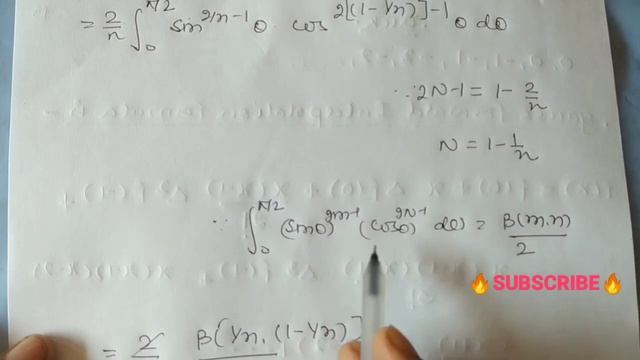 = 2/n ∫₀^{π/2} sin^{2/n-1}θ · cos^{2[(1-1/n)]-1}θ dθ
∵ 2N-1 = 1 - 2/n
N = 1 - 1/n
∵ ∫₀^{π/2} (sinθ)^{2m-1} (cosθ)^{2n-1} dθ = B(m,n)/2
🔥SUBSCRIBE🔥
= 2 B[1/n, (1-1/n)]